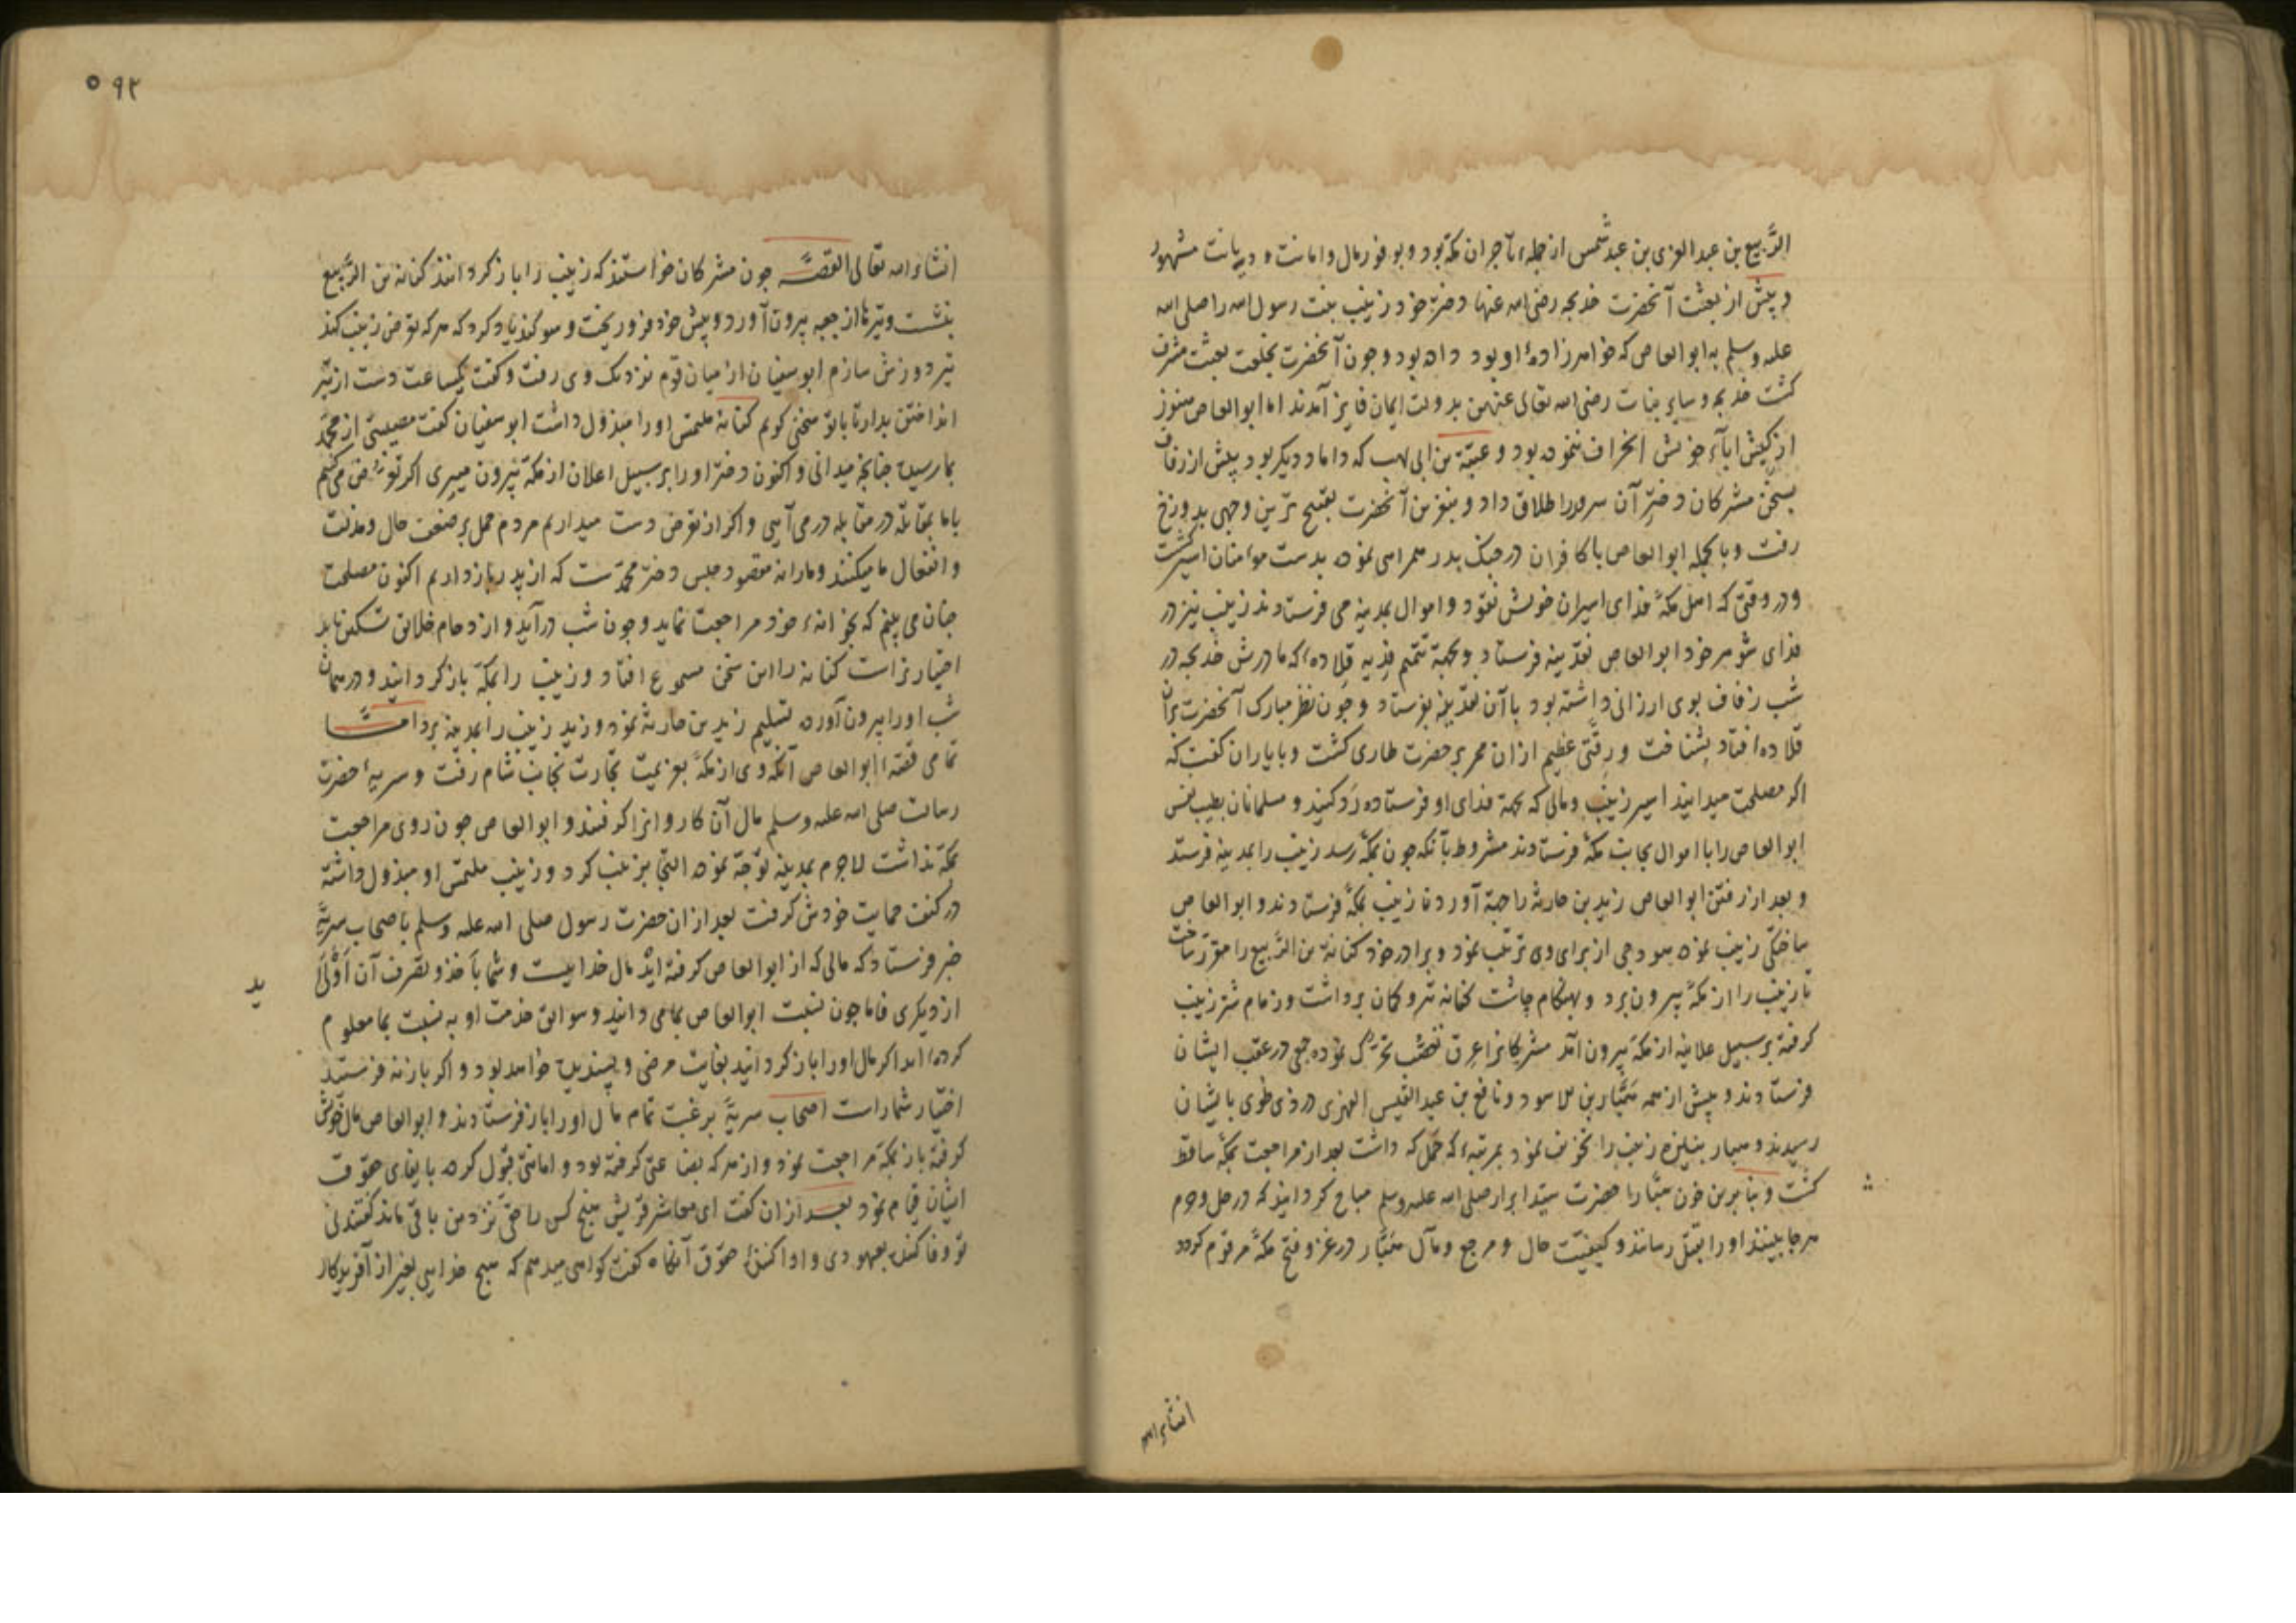 الرَّبیع بن عبد العزی بن عبد شمس از جمله تاجران مکه بود و بوفور مال و امانت و دیانت مشهور
و پیش از بعثت آنحضرت خدیجه رضی الله عنها دختر خود زینب بنت رسول الله را صلی الله
علیه وسلم به ابو العاص که خواهرزادهٔ او بود داده بود و چون آنحضرت بخلعت بعثت مشرف
کشت خدیجه و سایر بنات رضی الله تعالی عنهن بدولت ایمان فایز آمدند اما ابو العاص هنوز
از کیش اباء خویش انحراف ننموده بود و عتبة بن ابی لهب که داماد دیکر بود پیش از زفاف
بسخن مشرکان دختر آن سرور را طلاق داد و بنفرین آنحضرت بقبیح ترین وجهی بدوزخ
رفت و بالجمله ابو العاص با کافران در جنک بدر همراهی نموده بدست مؤمنان اسیر کشت
و در وقتی که اهل مکه فدای اسیران خویش نقود و اموال بمدینه می فرستادند زینب نیز در
فدای شوهر خود ابو العاص نقدینه فرستاد و بجهة تتمیم فدیه قلاده‌ای که مادرش خدیجه در
شب زفاف بوی ارزانی داشته بود با آن نقدینه بفرستاد و چون نظر مبارک آنحضرت بران
قلاده افتاد بشناخت و رقتی عظیم ازان ممر بر حضرت طاری کشت و با یاران کفت که
اکر مصلحت میدانید اسیر زینب و مالی که بجهة فدای او فرستاده رد کنید و مسلمانان بطیب نفس
ابو العاص را با اموال بجانب مکه فرستادند مشروط بآنکه چون بمکه رسد زینب را بمدینه فرستد
و بعد از رفتن ابو العاص زید بن حارثه را جهة آوردن زینب بمکه فرستادند و ابو العاص
ساختکی زینب نموده هودجی از برای وی ترتیب نمود و برادر خود کنانة بن الرَّبیع را مقرر ساخت
تا زینب را از مکه بیرون برد و بهنکام چاشت کنانه تیر و کمان برداشت و زمام شتر زینب
کرفته بر سبیل علانیه از مکه بیرون آمد مشرکانرا عرق تعصب تحریک نموده جمعی در عقب ایشان
فرستادند و پیش از همه هبّار بن الاسود و نافع بن عبد القیس الفهری در ذی طوی بایشان
رسیدند و هبار بنیزه زینب را تخویف نمود بمرتبه‌ای که حمل که داشت بعد از مراجعت بمکه ساقط
کشت و بنابرین خون هبّار را حضرت سید ابرار صلی الله علیه وسلم مباح کردانید که در حل و حرم
هر جا بینند او را بقتل رسانند و کیفیت حال و مرجع و مآل هبّار در غزو فتح مکه مرقوم کردد
انشاء الله
٥٩٢
انشاء الله تعالی القصّه چون مشرکان خواستند که زینب را باز کردانند کنانه بن الرَّبیع
بنشست و تیرها از جعبه بیرون آورد و پیش خود فرو ریخت و سوکند یاد کرد که هر که تعرض زینب کند
تیر دوزش سازم ابو سفیان از میان قوم نزدیک وی رفت و کفت یکساعت دست از تیر
انداختن بدار تا با تو سخنی کویم کنانه ملتمس او را مبذول داشت ابو سفیان کفت مصیبتی از محمد
بما رسیده چنانچه میدانی و اکنون دختر او را بر سبیل اعلان از مکه بیرون میبری اکر تعرض می کنیم
با ما بمقاتله در مقابله در می آیی و اکر از تعرض دست میداریم مردم حمل بر ضعف حال و مذلت
و انفعال ما میکنند و ما را نه مقصود حبس دختر محمد ست که از پدر باز داریم اکنون مصلحت
چنان می بینم که بخوانهء خود مراجعت نماید و چون شب درآید و ازدحام خلایق تسکین یابد
اختیار تراست کنانه را این سخن مسموع افتاد و زینب را بمکه باز کردانید و در همان
شب او را بیرون آورده تسلیم زید بن حارثه نمود و زید زینب را بمدینه برد اما
تمامی قصهٔ ابو العاص آنکه وی از مکه بعزیمت تجارت بجانب شام رفت و سریهٔ حضرت
رسالت صلی الله علیه وسلم مال آن کاروانرا کرفتند و ابو العاص چون روی مراجعت
بمکه نداشت لاجرم بمدینه توجه نموده التجا بزینب کرد و زینب ملتمس او مبذول داشته
در کنف حمایت خودش کرفت بعد ازان حضرت رسول صلی الله علیه وسلم باصحاب سریه
خبر فرستاد که مالی که از ابو العاص کرفته اید مال خداییست و شما باخذ و تصرف آن اولی
ید
از دیکری فاما چون نسبت ابو العاص بما می دانید و سوابق خدمت او به نسبت بما معلوم
کرده‌اید اکر مال او را باز کردانید بغایت مرضی و پسندیده خواهد بود و اکر باز نه فرستید
اختیار شماراست اصحاب سریه برغبت تمام مال او را باز فرستادند و ابو العاص مال خویش
کرفته باز بمکه مراجعت نمود و از هر که بضاعتی کرفته بود و امانتی قبول کرده بایفای حقوق
ایشان قیام نمود بعد ازان کفت ای معاشر قریش هیچ کس را حقی نزد من باقی ماند کفتند نی
تو وفا کنندهٔ بعهودی و ادا کنندهٔ حقوق آنکاه کفت کواهی میدهم که هیچ خدایی بغیر از آفریدکار